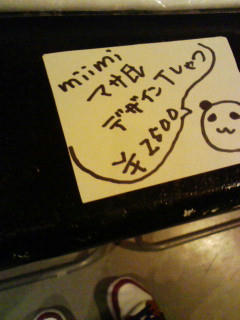 miimi
マサ氏
デザインTしゃつ
¥2500